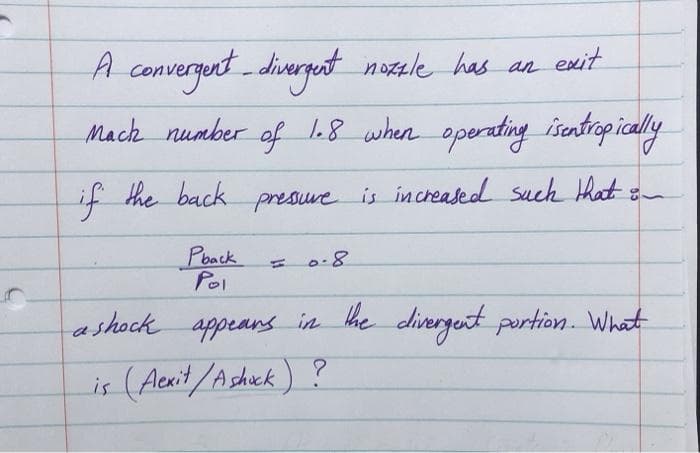 A convergent-divergent nozzle has an exit
Mach number of 1.8 when operating isentropically
if the back presure is increased such that :-
Pback / Po1 = 0.8
a shock appears in the divergent portion. What
is (Aexit/Ashock) ?